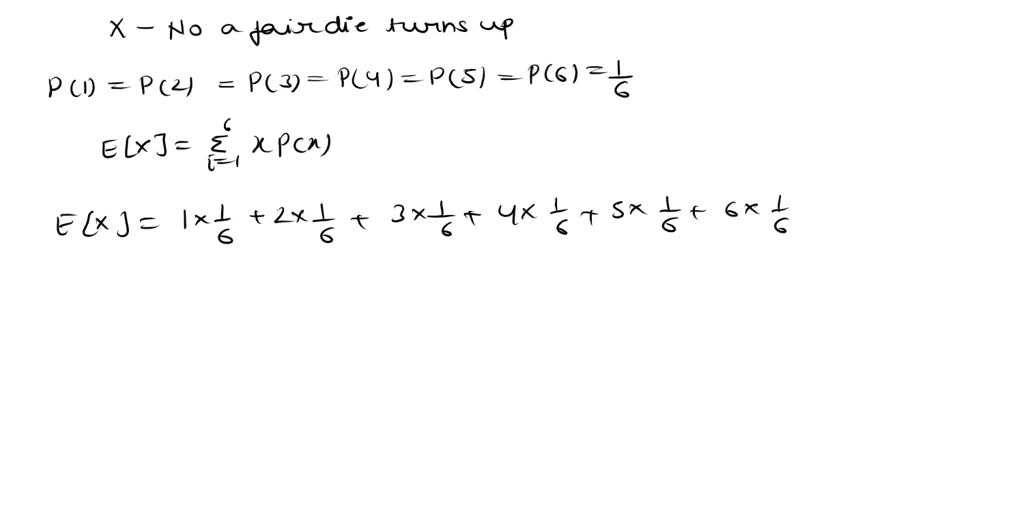 X - No a fair die turns up
P(1) = P(2) = P(3) = P(4) = P(5) = P(6) = 1/6
E[X] = Σ_{i=1}^{6} x P(x)
E[X] = 1 × 1/6 + 2 × 1/6 + 3 × 1/6 + 4 × 1/6 + 5 × 1/6 + 6 × 1/6